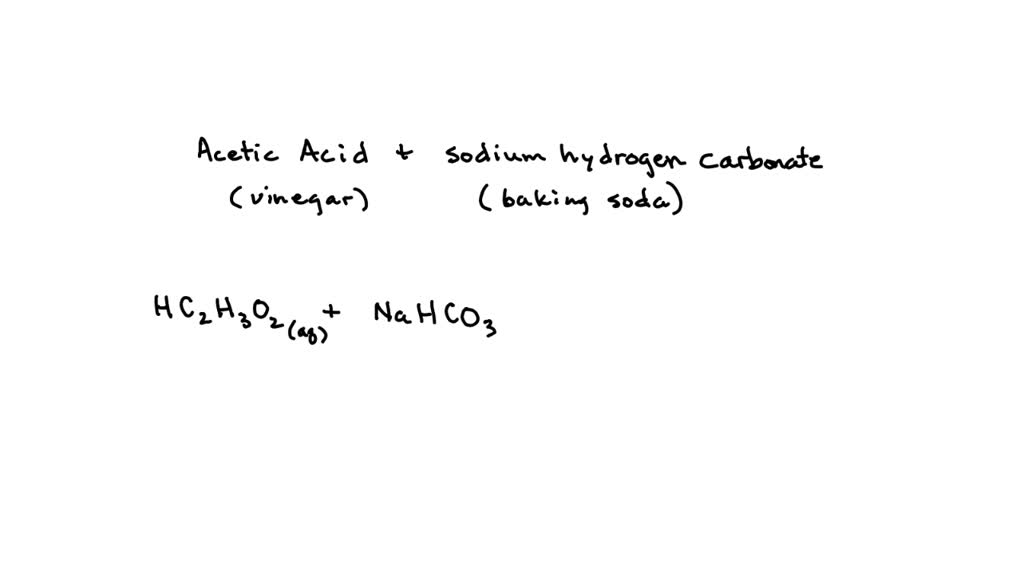 Acetic Acid + sodium hydrogen carbonate
(vinegar) (baking soda)
HC₂H₃O₂(aq) + NaHCO₃